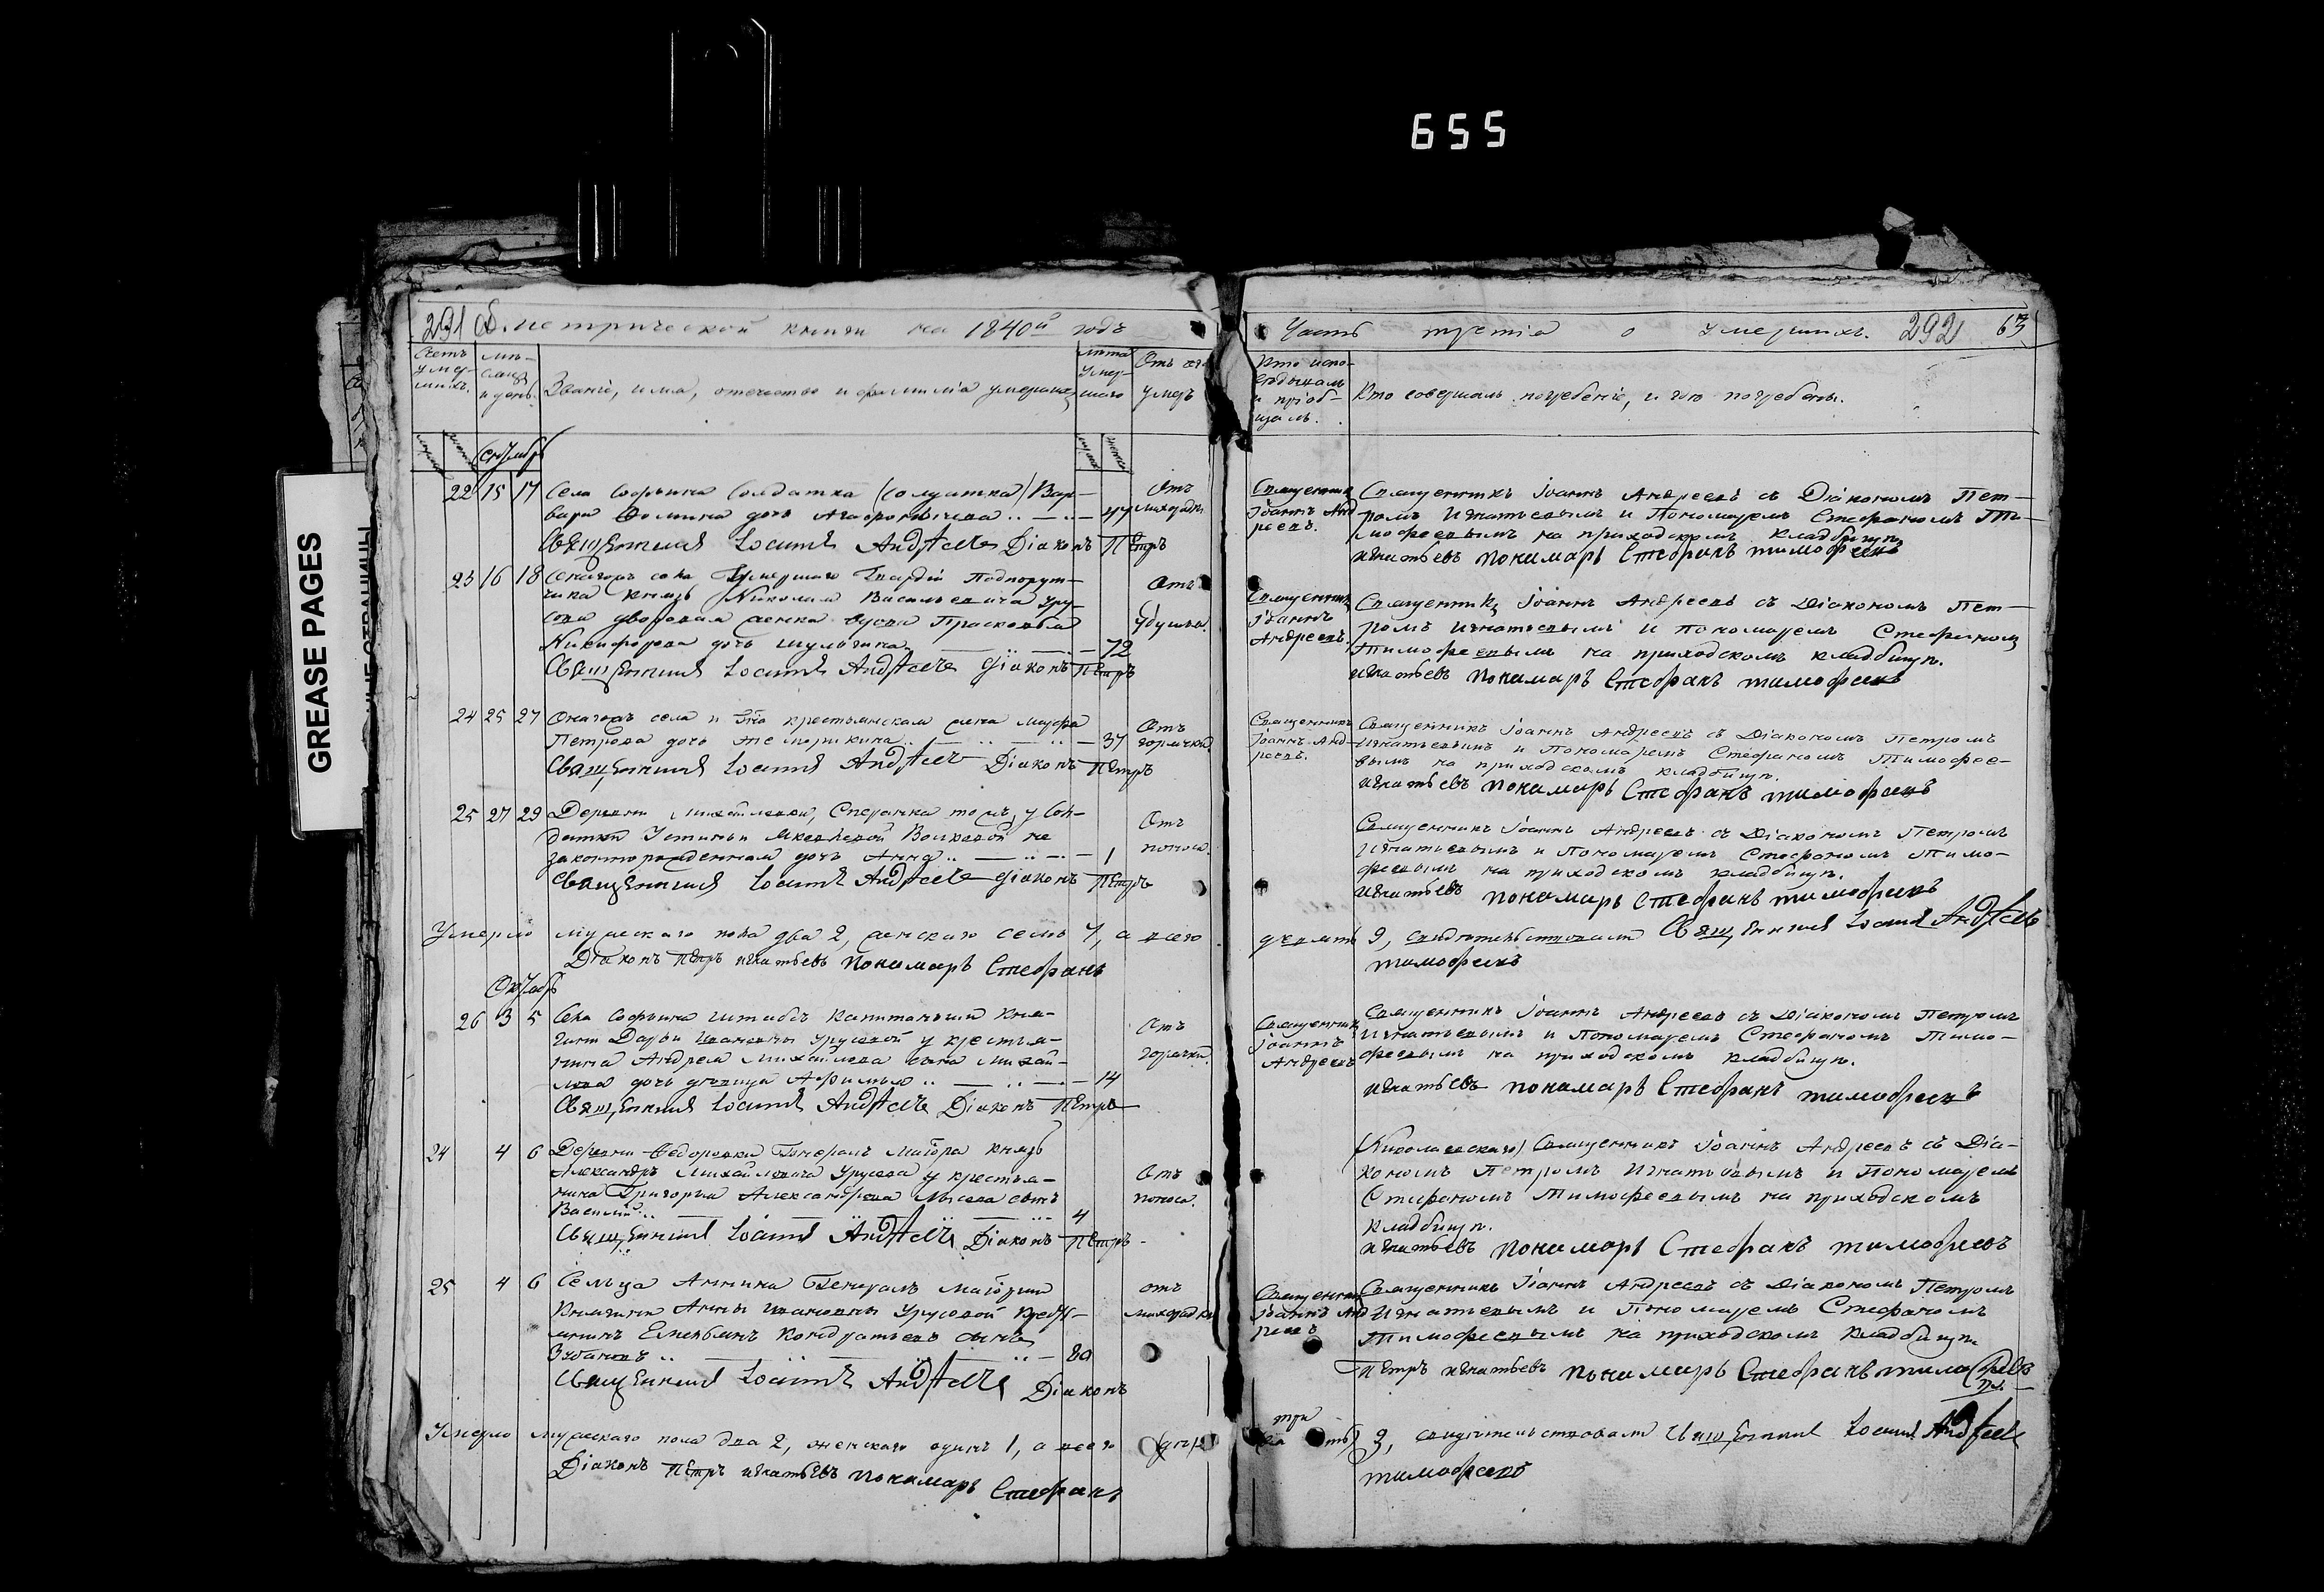 655
GREASE PAGES
291 об. метрической книги на 1840й годъ
Счетъ умер-
шихъ.
мѣ-
сяцъ
и день.
Званіе, имя, отечество и фамилія умершихъ
лѣта
умер-
шаго
Отъ чего
умеръ
Сентябрь
22 15 17 Села Софьина Солдатка (солдатка) Вар-
вара Фомина дочь
47
Отъ
лихорадки
Священникъ Іоаннъ Андреевъ Діаконъ Петръ
23 16 18 Онагожъ села Умершаго Гвардіи Подпорут-
чика Князь Николая Васильевича Уру-
сова дворовая женка вдова Прасковья
Никифорова дочь
72
Отъ
удушья.
Священникъ Іоаннъ Андреевъ Діаконъ Петръ
24 25 27 Онагожъ села крестьянская жена Марфа
Петрова дочь
37
Отъ
горячки
Священникъ Іоаннъ Андреевъ Діаконъ Петръ
25 27 29 Деревни у Сол-
датки Устиньи Волковой не
законнорожденная дочь Анна
1
Отъ
поноса.
Священникъ Іоаннъ Андреевъ Діаконъ Петръ
Умерло мужескаго пола два 2, женскаго семь 7, а всего
Діаконъ Петръ Игнатьевъ Пономарь Стефанъ
Октябрь
26 3 5 Села Софьина Штабсъ Капитанши Кня-
гини Дарьи Ивановны Урусовой у крестья-
нина Андрея Михайлова сына Михай-
лова дочь девица Афимья
14
Отъ
горячки.
Священникъ Іоаннъ Андреевъ Діаконъ Петръ
24 4 6 Деревни Федоровки Генералъ Маіора Князь
Александръ Михайловича Урусова у крестья-
нина Григорья Александрова сынъ
Василій
4
Отъ
поноса.
Священникъ Іоаннъ Андреевъ Діаконъ Петръ
25 4 6 Сельца Аннина Генералъ Маіорши
Княгини Анны Ивановны Урусовой Крестья-
нинъ Емельянъ Кондратьевъ сынъ
80
отъ
лихорадки
Священникъ Іоаннъ Андреевъ Діаконъ
Умерло мужескаго пола два 2, женскаго одинъ 1, а всего
Діаконъ Петръ Игнатьевъ Пономарь Стефанъ
Часть третіа о умершихъ. 292 63
Кто испо-
ведывалъ
и пріоб-
щалъ.
Кто совершалъ погребеніе, и гдѣ погребены.
Священникъ
Іоаннъ Анд
реевъ.
Священникъ Іоаннъ Андреевъ съ Діакономъ Пет-
ромъ Игнатьевымъ и Пономаремъ Стефаномъ Ти-
мофеевымъ на приходскомъ кладбищѣ
Игнатьевъ Пономарь Стефанъ Тимофеевъ
Священникъ
Іоаннъ
Андреевъ.
Священникъ Іоаннъ Андреевъ съ Діакономъ Пет-
ромъ Игнатьевымъ и Пономаремъ Стефаномъ
Тимофеевымъ на приходскомъ кладбищѣ.
Игнатьевъ Пономарь Стефанъ Тимофеевъ
Священникъ
Іоаннъ Анд-
реевъ.
Священникъ Іоаннъ Андреевъ съ Діакономъ Петромъ
Игнатьевымъ и Пономаремъ Стефаномъ Тимофее-
вымъ на приходскомъ кладбищѣ.
Игнатьевъ Пономарь Стефанъ Тимофеевъ
Священникъ Іоаннъ Андреевъ съ Діакономъ Петромъ
Игнатьевымъ и Пономаремъ Стефаномъ Тимо-
феевымъ на приходскомъ кладбищѣ.
Игнатьевъ Пономарь Стефанъ Тимофеевъ
девять 9, свидѣтельствовали Священникъ Іоаннъ Андреевъ
Тимофеевъ
Священникъ
Іоаннъ
Андреевъ
Священникъ Іоаннъ Андреевъ съ Діакономъ Петромъ
Игнатьевымъ и Пономаремъ Стефаномъ Тимо-
феевымъ на приходскомъ кладбищѣ.
Игнатьевъ Пономарь Стефанъ Тимофеевъ
Священникъ Іоаннъ Андреевъ съ Діа-
кономъ Петромъ Игнатьевымъ и Пономаремъ
Стефаномъ Тимофеевымъ на приходскомъ
кладбищѣ.
Игнатьевъ Пономарь Стефанъ Тимофеевъ
Священникъ
Іоаннъ Анд
реевъ
Священникъ Іоаннъ Андреевъ съ Діакономъ Петромъ
Игнатьевымъ и Пономаремъ Стефаномъ
Тимофеевымъ на приходскомъ кладбищѣ
Петръ Игнатьевъ Пономарь Стефанъ Тимофеевъ
три
3, свидѣтельствовали Священникъ Іоаннъ Андреевъ
Тимофеевъ